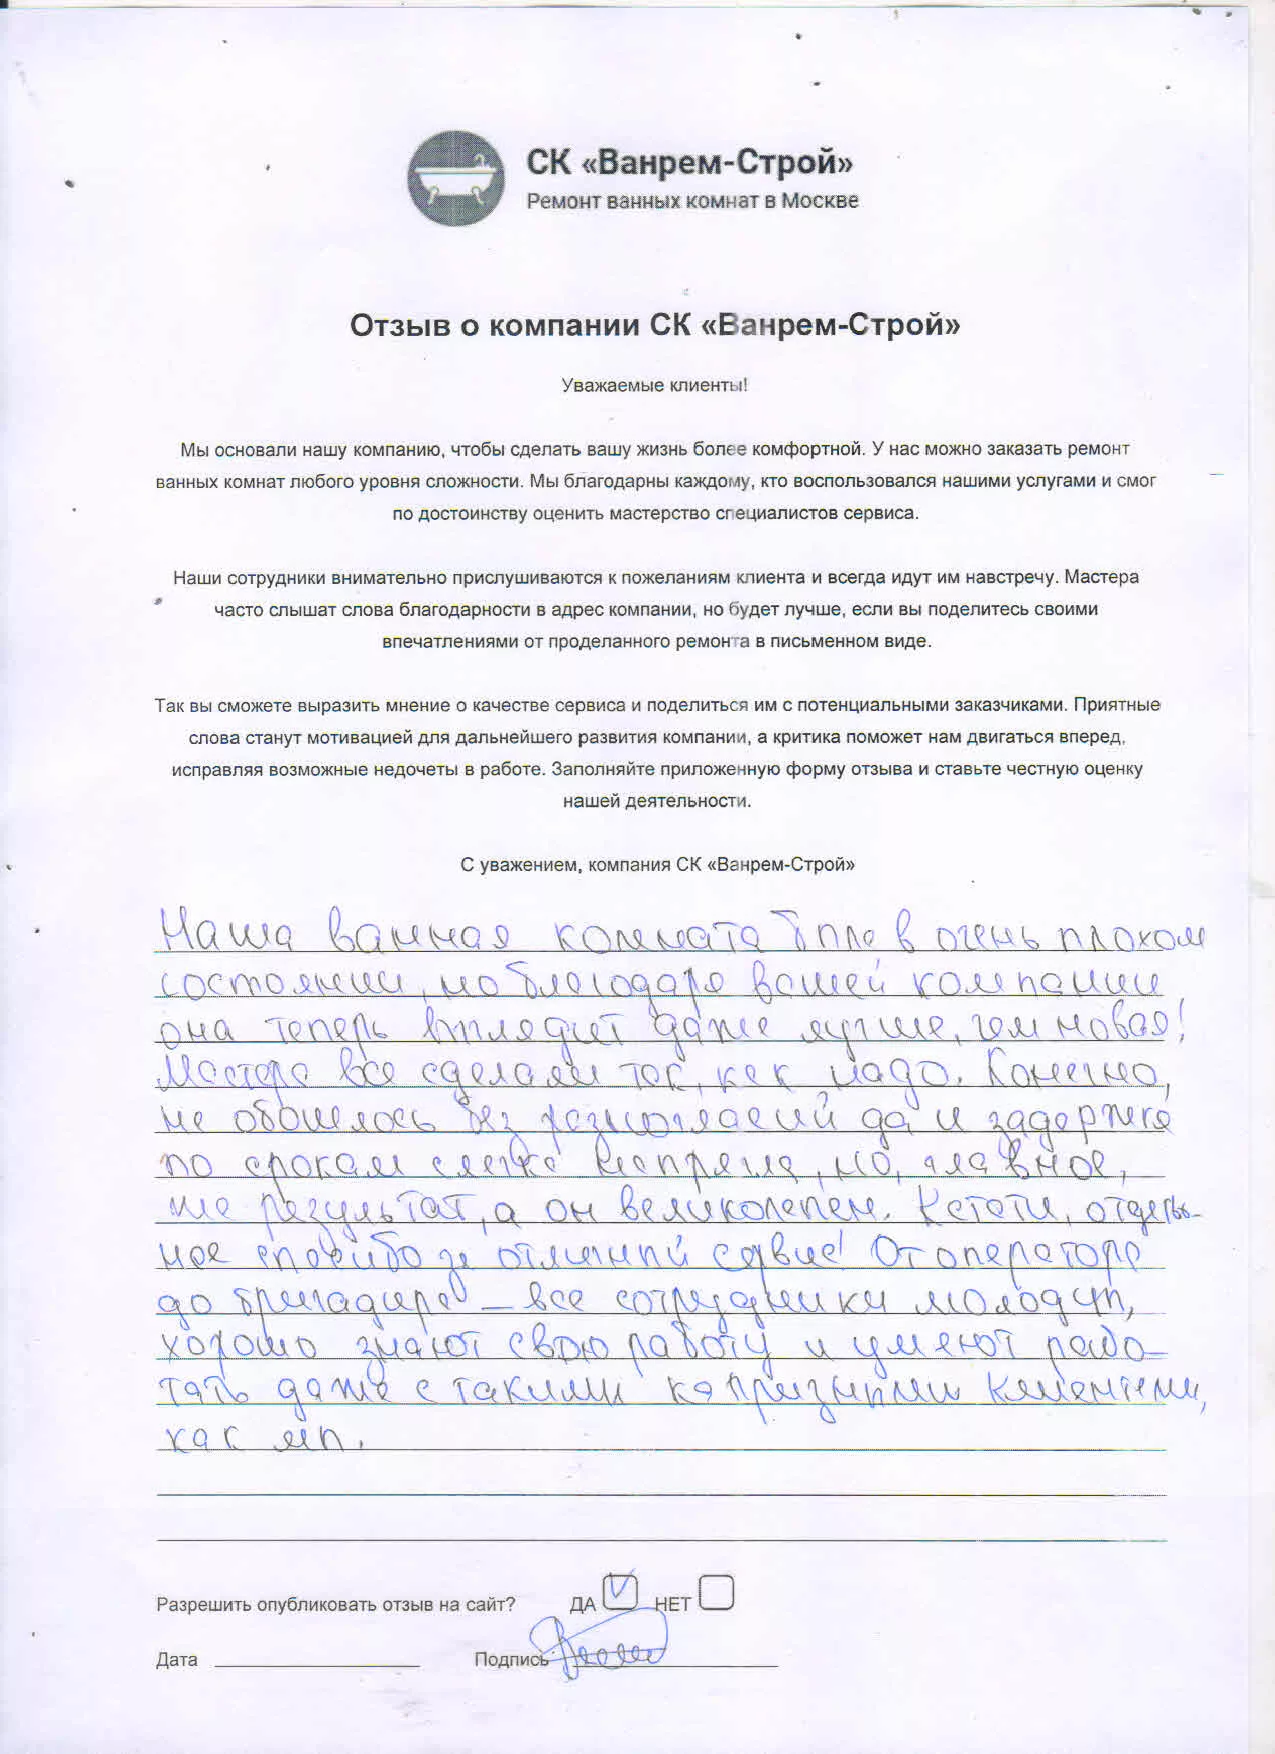 СК «Ванрем-Строй»
Ремонт ванных комнат в Москве
Отзыв о компании СК «Ванрем-Строй»
Уважаемые клиенты!
Мы основали нашу компанию, чтобы сделать вашу жизнь более комфортной. У нас можно заказать ремонт
ванных комнат любого уровня сложности. Мы благодарны каждому, кто воспользовался нашими услугами и смог
по достоинству оценить мастерство специалистов сервиса.
Наши сотрудники внимательно прислушиваются к пожеланиям клиента и всегда идут им навстречу. Мастера
часто слышат слова благодарности в адрес компании, но будет лучше, если вы поделитесь своими
впечатлениями от проделанного ремонта в письменном виде.
Так вы сможете выразить мнение о качестве сервиса и поделиться им с потенциальными заказчиками. Приятные
слова станут мотивацией для дальнейшего развития компании, а критика поможет нам двигаться вперед,
исправляя возможные недочеты в работе. Заполняйте приложенную форму отзыва и ставьте честную оценку
нашей деятельности.
С уважением, компания СК «Ванрем-Строй»
Наша ванная комната была в очень плохом
состоянии, но благодаря вашей компании
она теперь выглядит даже лучше, чем новая!
Мастера все сделали так, как надо. Конечно,
не обошлось без разногласий да и задержка
по срокам слегка напрягла, но, главное,
же результат, а он великолепен. Кстати, отдель-
ное спасибо за отличный сервис! От оператора
до бригадира – все сотрудники молодцы,
хорошо знают свою работу и умеют рабо-
тать даже с такими капризными клиентами,
как мы.
Разрешить опубликовать отзыв на сайт? ДА НЕТ
Дата Подпись